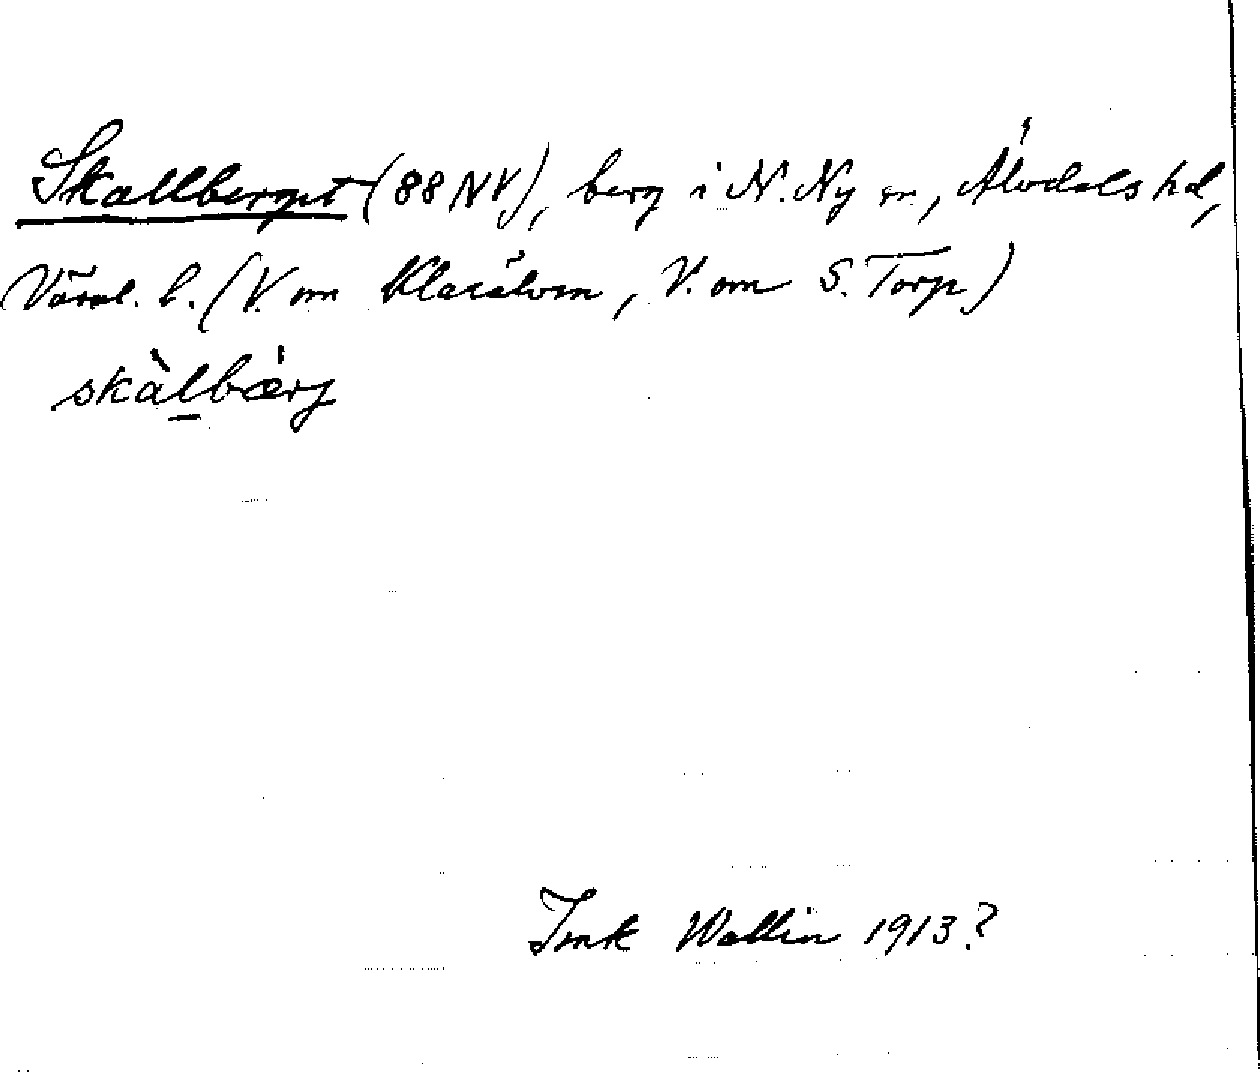 Skallberget (88 NV), berg i N. Ny sn, Älvdals hd,
Värml. l. (V. om Klarälven, V. om S. Torp)
skàlbærj
Wallin 1913?